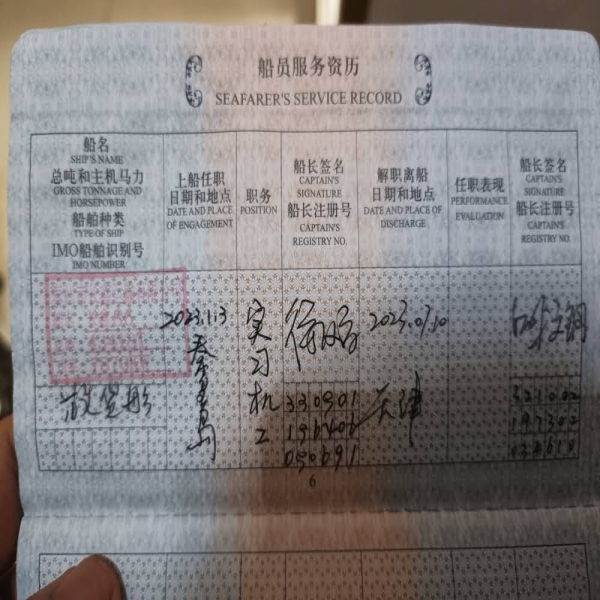 船员服务资历
SEAFARER'S SERVICE RECORD
船名
SHIP'S NAME
总吨和主机马力
GROSS TONNAGE AND
HORSEPOWER
船舶种类
TYPE OF SHIP
IMO船舶识别号
IMO NUMBER
上船任职
日期和地点
DATE AND PLACE
OF ENGAGEMENT
职务
POSITION
船长签名
CAPTAIN'S
SIGNATURE
船长注册号
CAPTAIN'S
REGISTRY NO.
解职离船
日期和地点
DATE AND PLACE OF
DISCHARGE
任职表现
PERFORMANCE
EVALUATION
船长签名
CAPTAIN'S
SIGNATURE
船长注册号
CAPTAIN'S
REGISTRY NO.
散货船
2023.1.3
秦皇岛
实习机工
330901
196406
2023.07.10
天津
321002
6